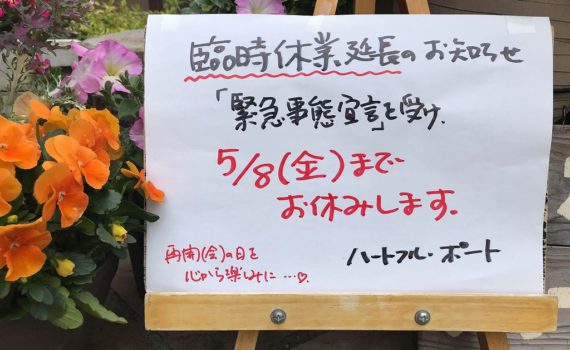 臨時休業延長のお知らせ
「緊急事態宣言」を受け、
5/8(金)まで
お休みします。
再開(会)の日を
心から楽しみに…♡.
ハートフル・ポート